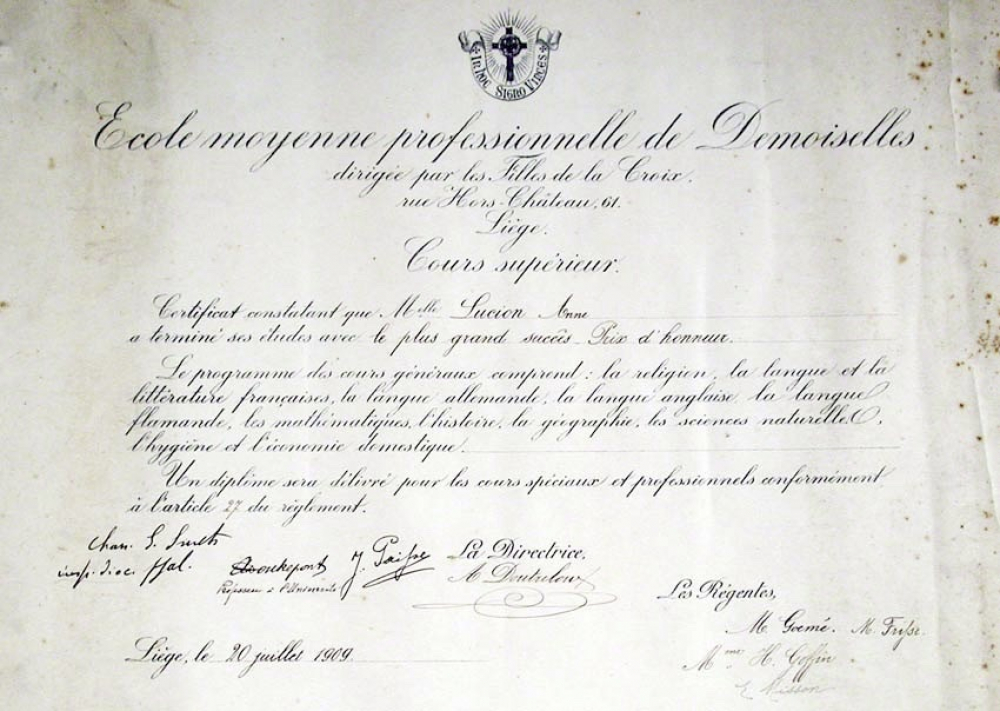 IN HOC SIGNO VINCES
Ecole moyenne professionnelle de Demoiselles
dirigée par les Filles de la Croix.
rue Hors-Château, 61.
Liège.
Cours supérieur.
Certificat constatant que Melle Lucion Anne
a terminé ses études avec le plus grand succès - Prix d'honneur.
Le programme des cours généraux comprend : la religion, la langue et la
littérature françaises, la langue allemande, la langue anglaise, la langue
flamande, les mathématiques, l'histoire, la géographie, les sciences naturelles,
l'hygiène et l'économie domestique.
Un diplôme sera délivré pour les cours spéciaux et professionnels conformément
à l'article 27 du règlement.
Chan. S. Smets
insp. dioc. ppal.
J.
Professeur à l'Université
La Directrice,
Les Régentes,
M. Goemé. M.
Mme H. Goffin
Liège, le 20 juillet 1909.